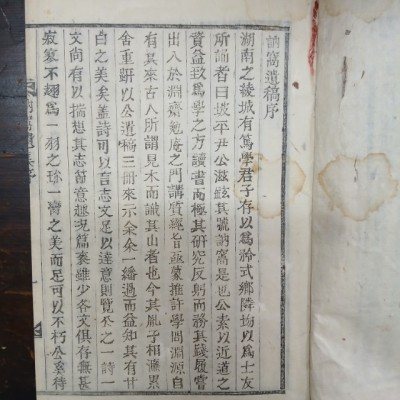 訥窩遺稿序
湖南之綾城有篤學君子存以爲矜式鄉隣歿以爲士友
所誦者曰坡平尹公滋鉉其號訥窩是也公素以近道之
資益致爲學之方讀書而極其研究反躬而務其踐履嘗
出入於淵齋勉庵之門講質經旨亟蒙推許學問淵源自
有其來古人所謂見木而識其山者也今其胤子相濂累
舍重趼以公遺稿三冊來示余余一繙過而益知其有甘
白之美矣蓋詩可以言志文足以達意則覽於之一詩一
文尚有以揣想其志節意趣況篇袠雖少各文俱存無甚
寂寥不翅爲一羽之珍一臠之美而足可以不朽公奚待